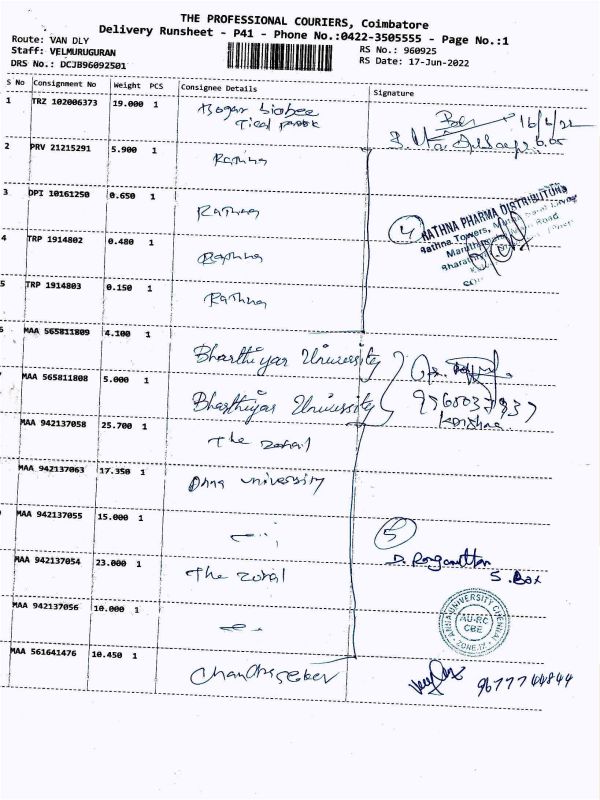 THE PROFESSIONAL COURIERS, Coimbatore
Delivery Runsheet - P41 - Phone No.:0422-3505555 - Page No.:1
Route: VAN DLY
Staff: VELMURUGURAN
DRS No.: DCJB96092501
RS No.: 960925
RS Date: 17-Jun-2022
S No Consignment No Weight PCS Consignee Details Signature
1 TRZ 102006373 19.000 1
2 PRV 21215291 5.900 1 Rathna
3 DPI 10161250 0.650 1 Rathna
4 TRP 1914802 0.480 1 Rathna
5 TRP 1914803 0.150 1 Rathna
4
RATHNA PHARMA DISTRIBUTORS
Rathna Towers,
Road
6 MAA 565811809 4.100 1 Bharthiyar University
MAA 565811808 5.000 1 Bharthiyar University
Krishna
MAA 942137058 25.700 1 The zonal
MAA 942137063 17.350 1 Anna university
MAA 942137055 15.000 1
5
MAA 942137054 23.000 1 The zonal
S. Box
MAA 942137056 10.000 1
ANNA UNIVERSITY CHENNAI
AU-RC
CBE
ZONE.17
MAA 561641476 10.450 1 Chandrasekar
9677744844